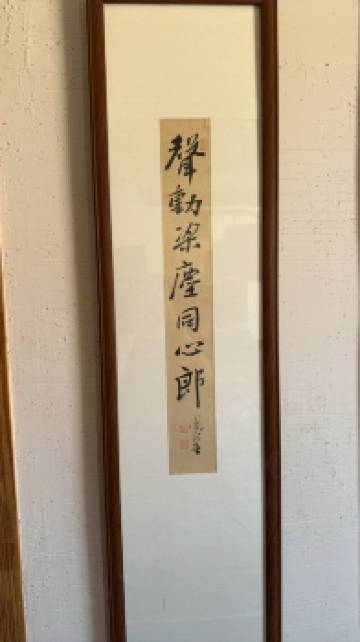 聲動梁塵同心郎